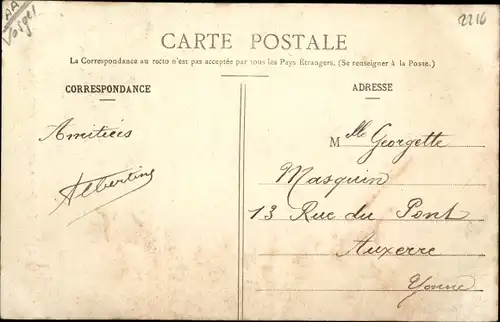 AA
Vosges
2216
CARTE POSTALE
La Correspondance au recto n'est pas acceptée par tous les Pays Etrangers. (Se renseigner à la Poste.)
CORRESPONDANCE
Amitiées
Albertine
ADRESSE
Mlle Georgette
Masquin
13 Rue du Pont
Auxerre
Yonne